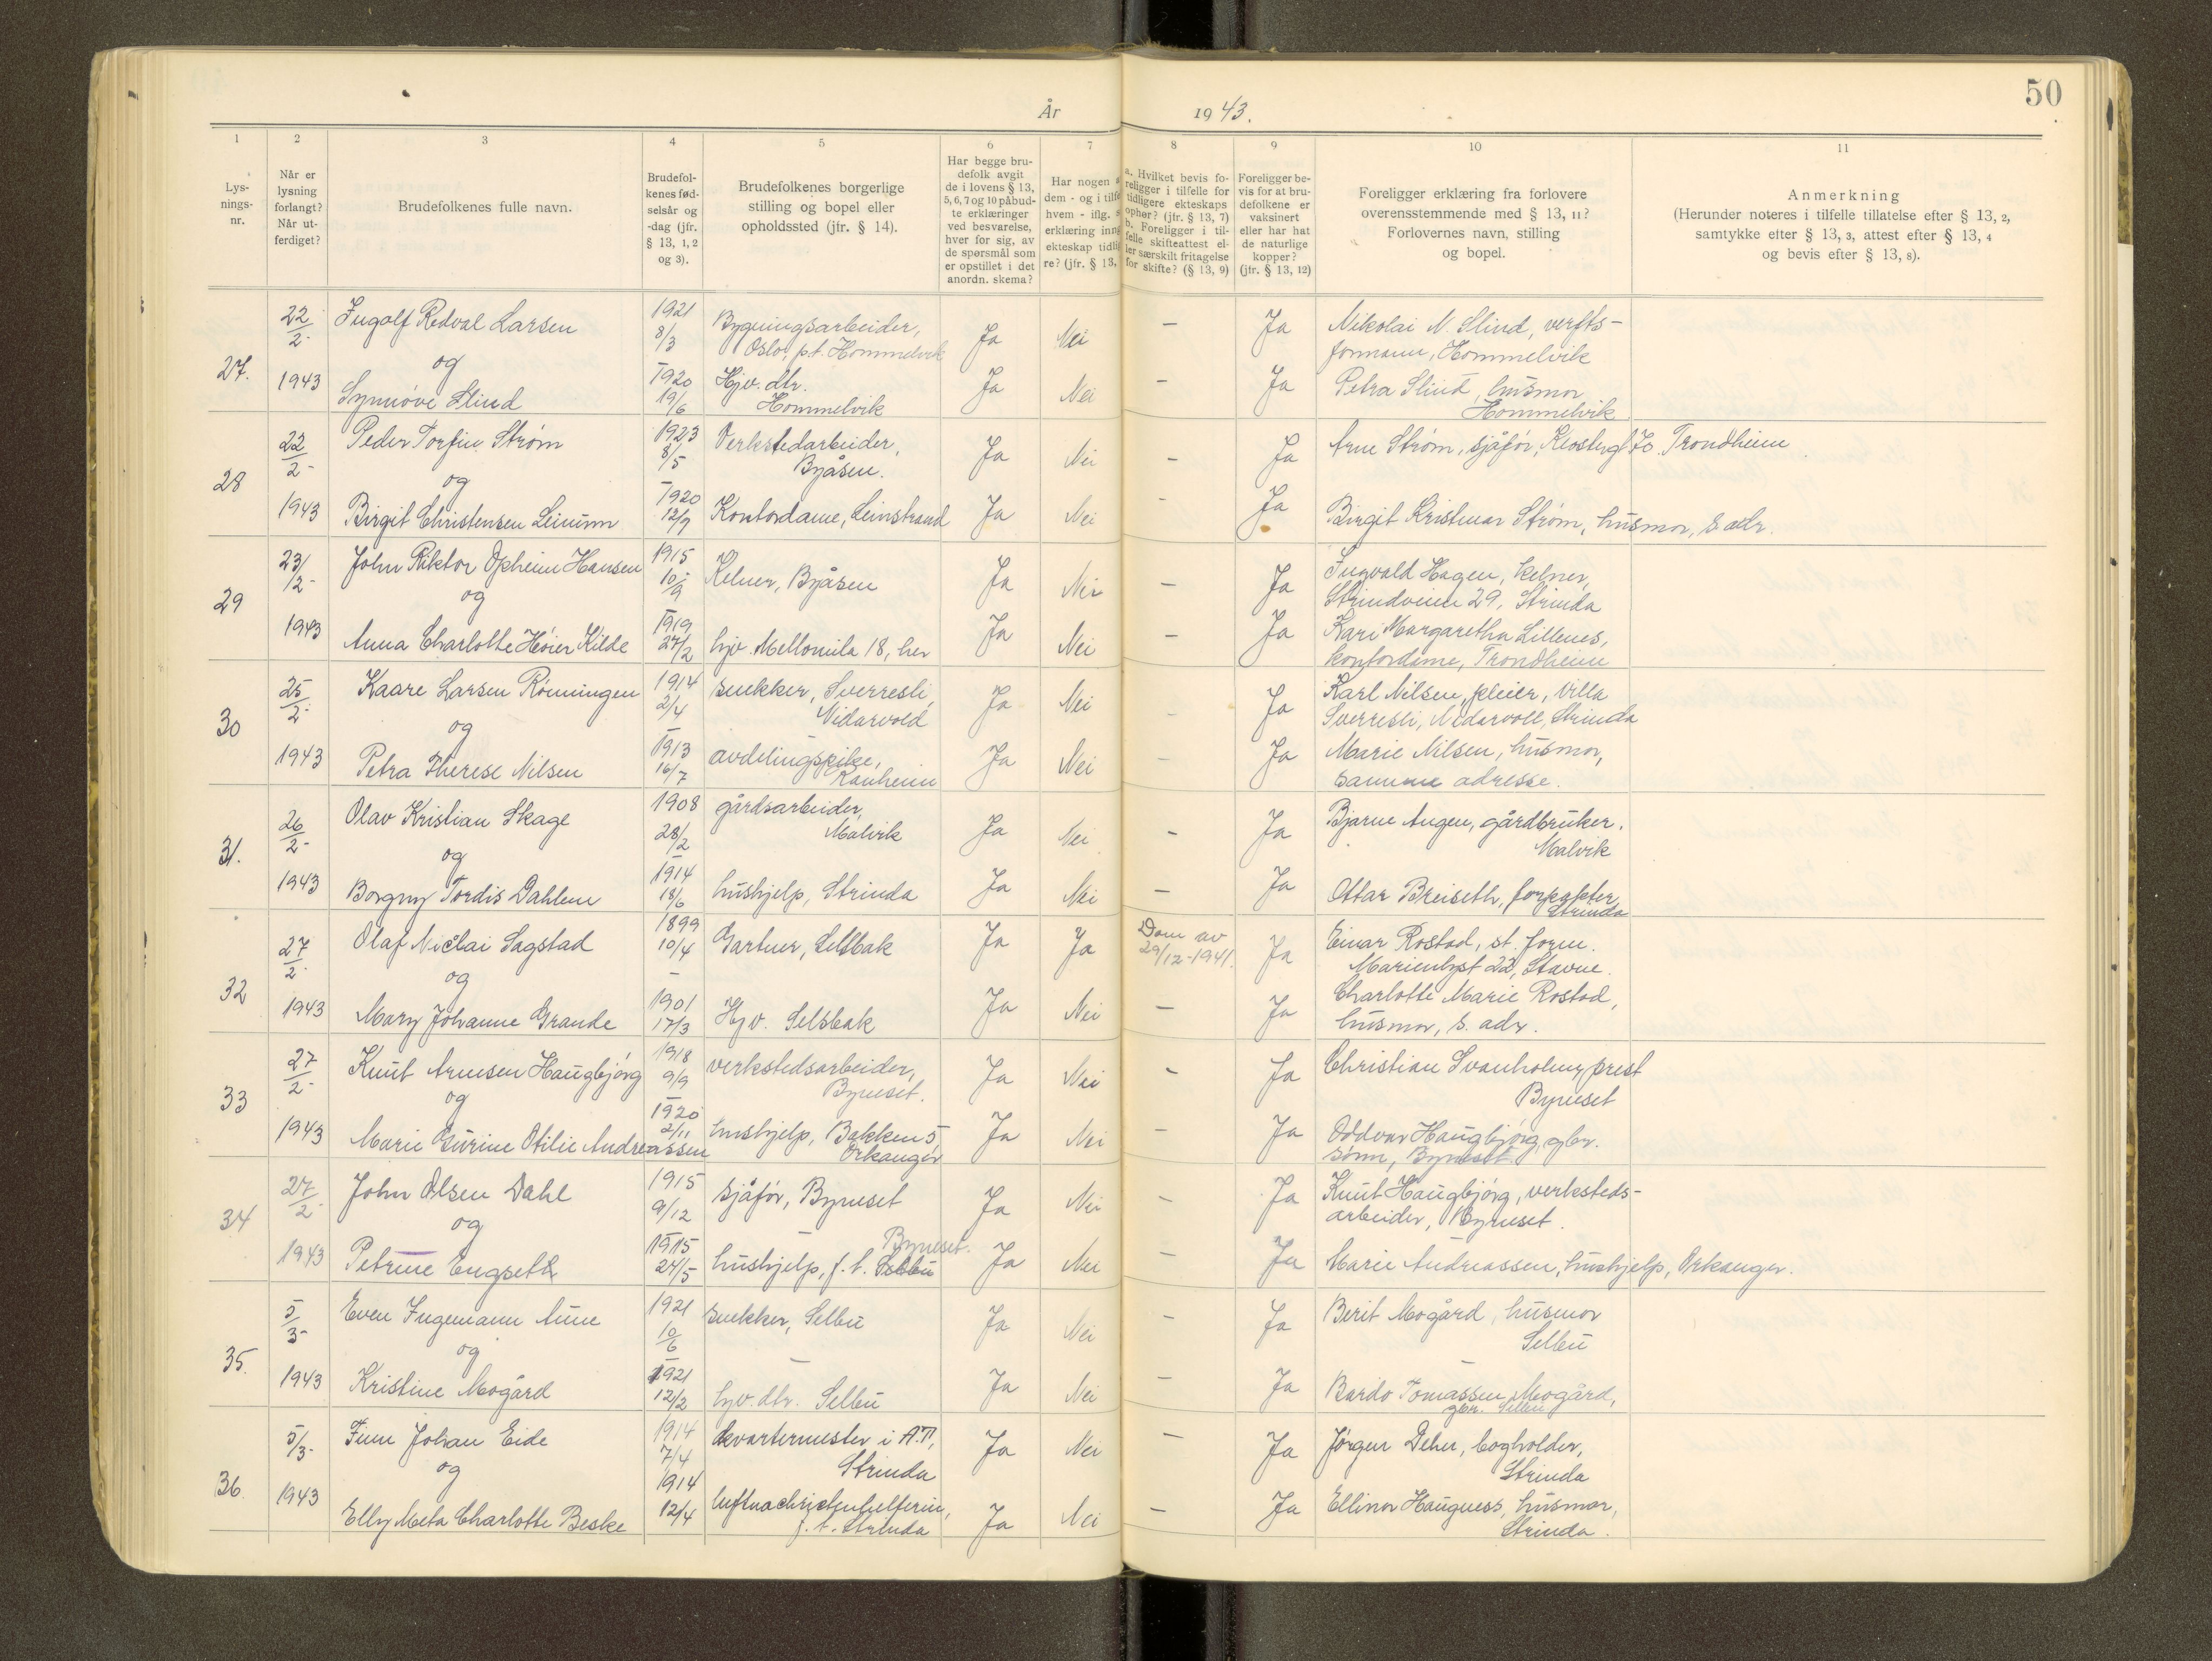 50
År 1943.
1 2 3 4 5 6 7 8 9 10 11
Lys-
nings-
nr.
Når er
lysning
forlangt?
Når ut-
ferdiget?
Brudefolkenes fulle navn.
Brudefol-
kenes fød-
selsår og
-dag (jfr.
§ 13, 1, 2
og 3).
Brudefolkenes borgerlige
stilling og bopel eller
opholdssted (jfr. § 14).
Har begge bru-
defolk avgit
de i lovens § 13,
5, 6, 7 og 10 påbud-
te erklæringer
ved besvarelse,
hver for sig, av
de spørsmål som
er opstillet i det
anordn. skema?
Har nogen a
dem - og i tilfe
hvem - iflg. s
erklæring inng
ekteskap tidlig
re? (jfr. § 13,
a. Hvilket bevis fo-
religger i tilfelle for
tidligere ekteskaps
ophør? (jfr. § 13, 7)
b. Foreligger i til-
felle skifteattest el-
ler særskilt fritagelse
for skifte? (§ 13, 9)
Foreligger be-
vis for at bru-
defolkene er
vaksinert
eller har hat
de naturlige
kopper?
(jfr. § 13, 12)
Foreligger erklæring fra forlovere
overensstemmende med § 13, 11?
Forlovernes navn, stilling
og bopel.
Anmerkning
(Herunder noteres i tilfelle tillatelse efter § 13, 2,
samtykke efter § 13, 3, attest efter § 13, 4
og bevis efter § 13, 8).
27.
22/2-
1943
Ingolf Redval Larsen
og
Synnøve Slind
1921
8/3
–
1920
19/6
Bygningsarbeider,
Oslo, p.t. Hommelvik
Hjv. dtr.
Hommelvik
Ja Nei – Ja
Ja Nei – Ja
Nikolai N. Slind, verfts-
formann, Hommelvik
Petra Slind, husmor
Hommelvik
28
22/2-
1943
Peder Torfin Strøm
og
Birgit Christensen Leinum
1923
8/5
–
1920
12/9
Verkstedarbeider,
Byåsen.
Kontordame, Leinstrand
Ja Nei – Ja
Ja Nei – Ja
Arne Strøm, sjåfør, Trondheim
Birgit Kristmar Strøm, husmor, s. adr.
29
23/2-
1943
John Opheim Hansen
og
Anna Charlotte Høier Kilde
1915
10/9
–
1919
27/2
Kelner, Byåsen
hjv. Mellomila 18, her
Ja Nei – Ja
Ja Nei – Ja
Ingvald Hagen, kelner,
Strindveien 29, Strinda
Kari Margaretha Lillenes,
kontordame, Trondheim
30
25/2-
1943
Kaare Larsen Rønningen
og
Petra Therese Nilsen
1914
2/4
–
1913
16/7
snekker, Sverresli,
Nidarvold
avdelingspike,
Ranheim
Ja Nei – Ja
Ja Nei – Ja
Karl Nilsen, pleier, Villa
Sverresli, Nidarvoll, Strinda
Marie Nilsen, husmor,
samme adresse.
31.
26/2-
1943
Olav Kristian Skage
og
Borgny Tordis Dahlen
1908
28/2
–
1914
18/6
gårdsarbeider,
Malvik
hushjelp, Strinda
Ja Nei – Ja
Ja Nei – Ja
Bjarne Augen, gårdbruker.
Malvik
Ottar Breiseth, forpakter
Strinda
32
27/2-
1943
Olaf Nicolai Sagstad
og
Mary Johanne Grande
1899
10/4
–
1901
17/3
Gartner, Selsbak
Hjv. Selsbak
Ja Ja Dom av
29/12-1941. Ja
Ja Nei – Ja
Einar Rostad, st. form.
Marienlyst 22, Stavne.
Charlotte Marie Rostad,
husmor, s. adr.
33
27/2-
1943
Knut Arnesen Haugbjørg
og
Marie Gurine Otilie Andreassen
1918
9/9
–
1920
2/11
verkstedsarbeider,
Byneset.
hushjelp, Bakken 5,
Orkanger
Ja Nei – Ja
Ja Nei – Ja
Christian Svanholm, prest
Byneset
Oddvar Haugbjørg, gbr.
sønn, Byneset.
34
27/2-
1943
John Olsen Dahl
og
Petrine Engseth
1915
9/12
–
1915
24/5
Sjåfør, Byneset
Byneset.
hushjelp, f. t. Selbu
Ja Nei – Ja
Ja Nei – Ja
Knut Haugbjørg, verksteds-
arbeider, Byneset.
Marie Andreassen, hushjelp, Orkanger.
35.
5/3-
1943
Even Ingemann Aune
og
Kristine Mogård
1921
10/6
–
1921
12/2
snekker, Selbu
–
hjv. dtr. Selbu
Ja Nei – Ja
Ja Nei – Ja
Berit Mogård, husmor
Selbu
–
Bardo Tomassen Mogård,
gbr. Selbu
36.
5/3-
1943
Finn Johan Eide
og
Elly Meta Charlotte Beske
1914
7/4
1914
12/4
kvartermester i A.T,
Strinda
luftnachrichtenhelferin,
f. t. Strinda
Ja Nei – Ja
Ja Nei – Ja
Jørgen Deher, bogholder,
Strinda
Ellinor Haugness, husmor,
Strinda.